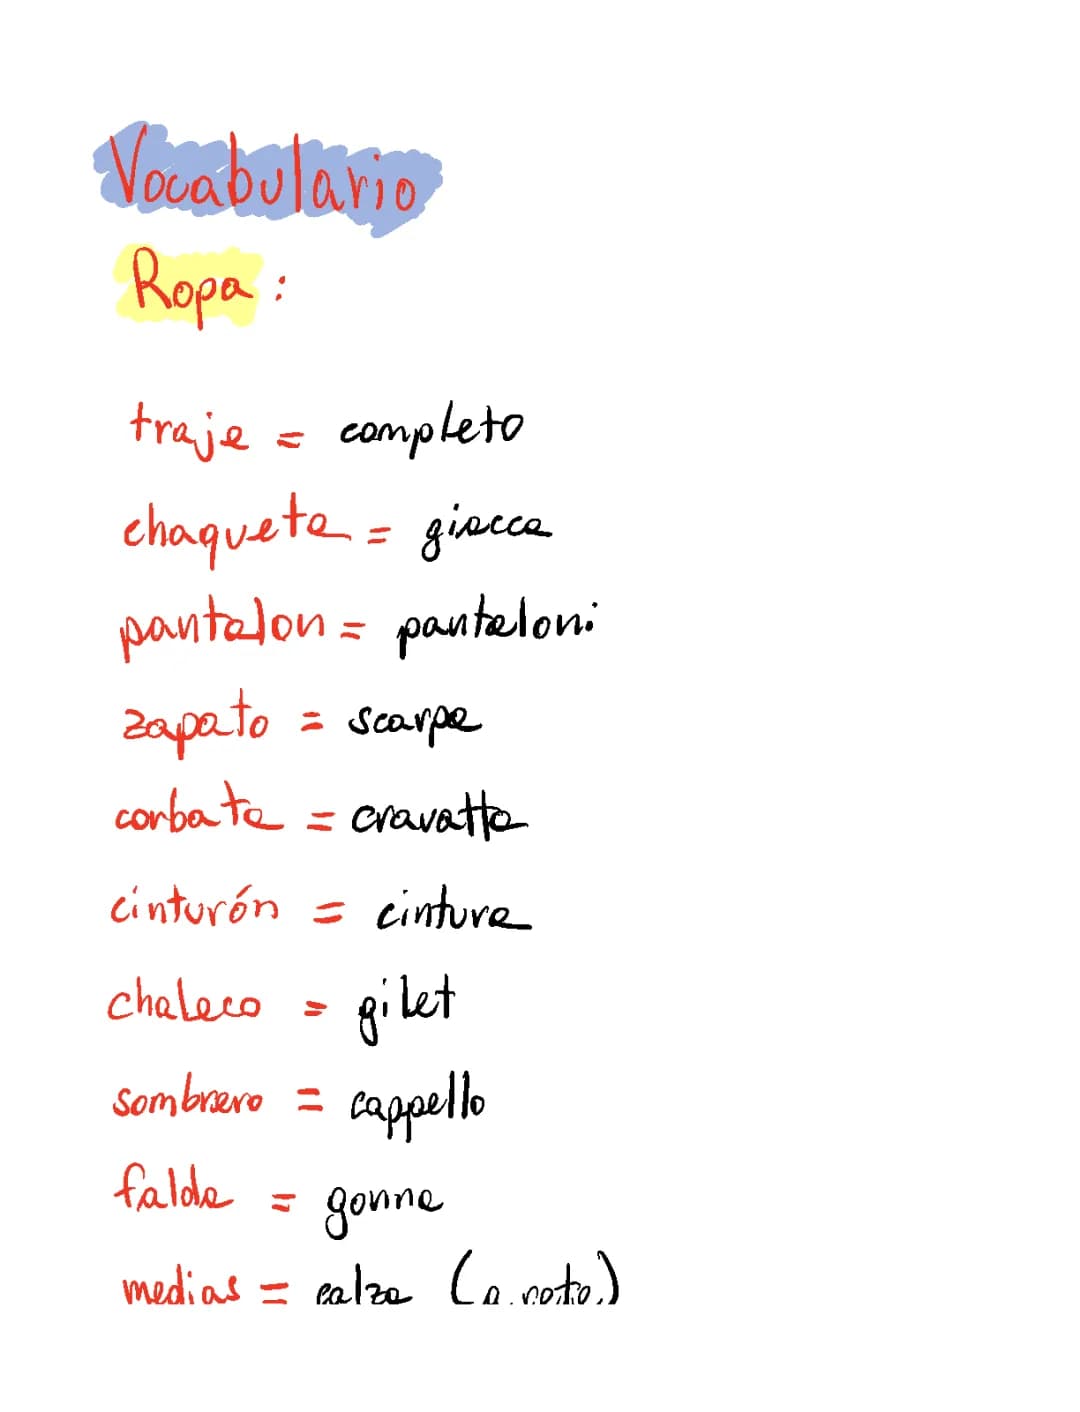 Vocabulario
Ropa :
traje = completo
chaqueta = giacca
pantalon = pantaloni
zapato = scarpe
corbata = cravatta
cinturón = cintura
chaleco = gilet
sombrero = cappello
falda = gonna
medias = calza